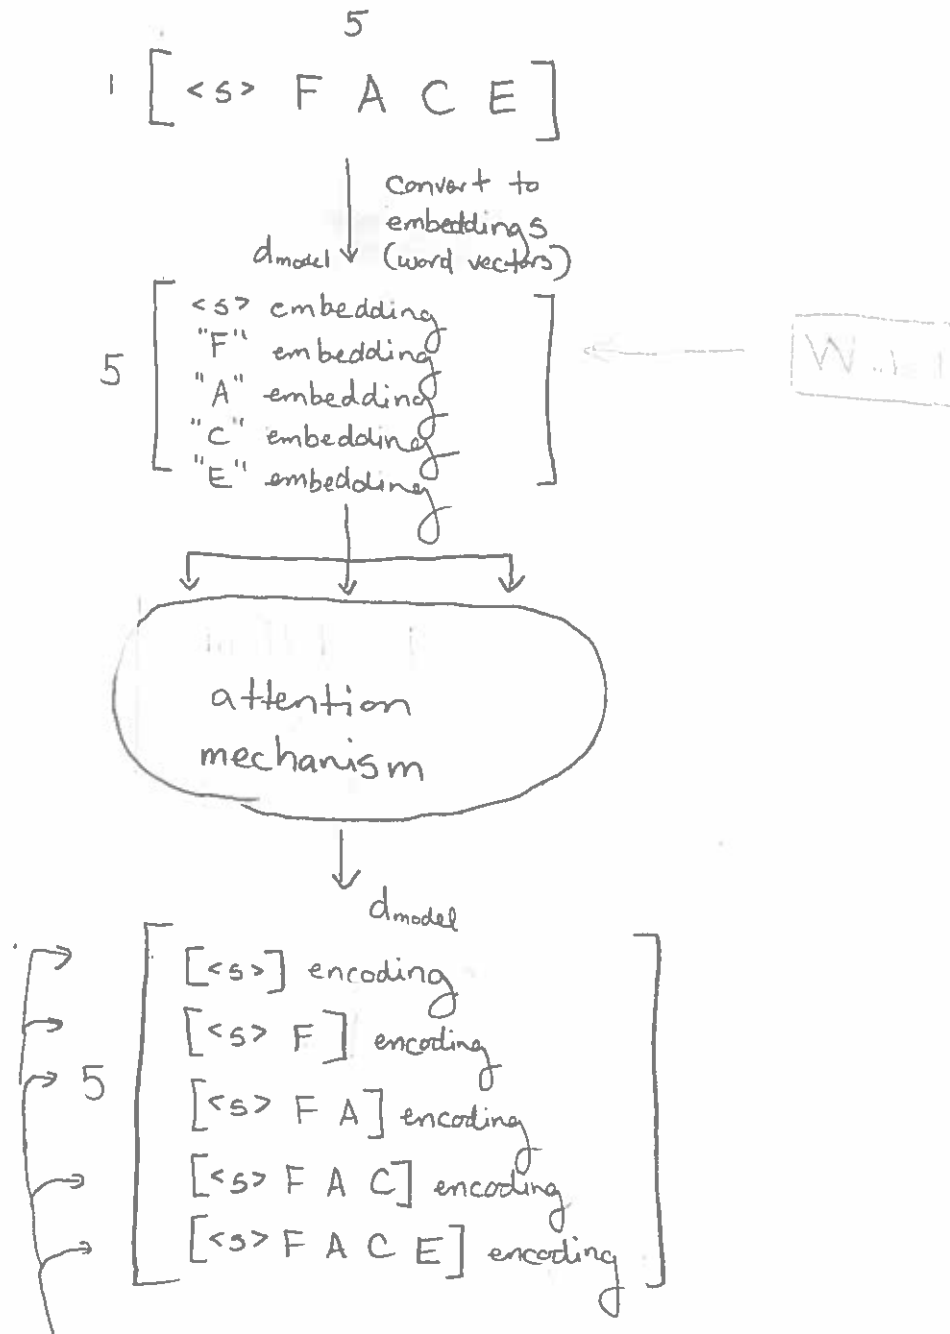 5
1 [ <s> F A C E ]
convert to
embeddings
dmodel (word vectors)
<s> embedding
"F" embedding
5 "A" embedding
"C" embedding
"E" embedding
attention
mechanism
dmodel
[<s>] encoding
[<s> F] encoding
5 [<s> F A] encoding
[<s> F A C] encoding
[<s> F A C E] encoding